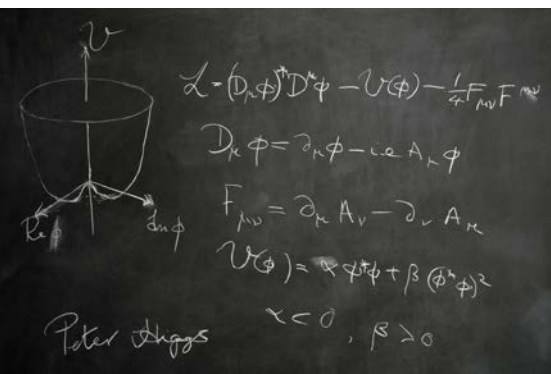 V
ℒ = (D_μ ϕ)^* D^μ ϕ − V(ϕ) − 1/4 F_μν F^μν
D_μ ϕ = ∂_μ ϕ − i e A_μ ϕ
F_μν = ∂_μ A_ν − ∂_ν A_μ
Re ϕ
Im ϕ
V(ϕ) = α ϕ^*ϕ + β (ϕ^*ϕ)^2
α < 0 , β > 0
Peter Higgs